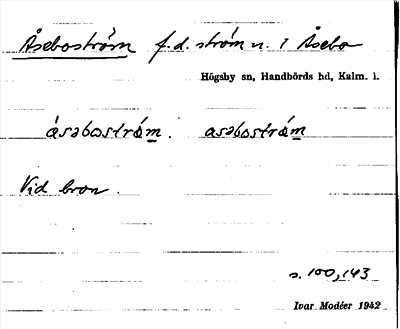 Åseboström f.d. ström n. i Åsebo
Högsby sn, Handbörds hd, Kalm. l.
åsəboström. asəboström
Vid bron.
s. 100, 143
Ivar Modéer 1942